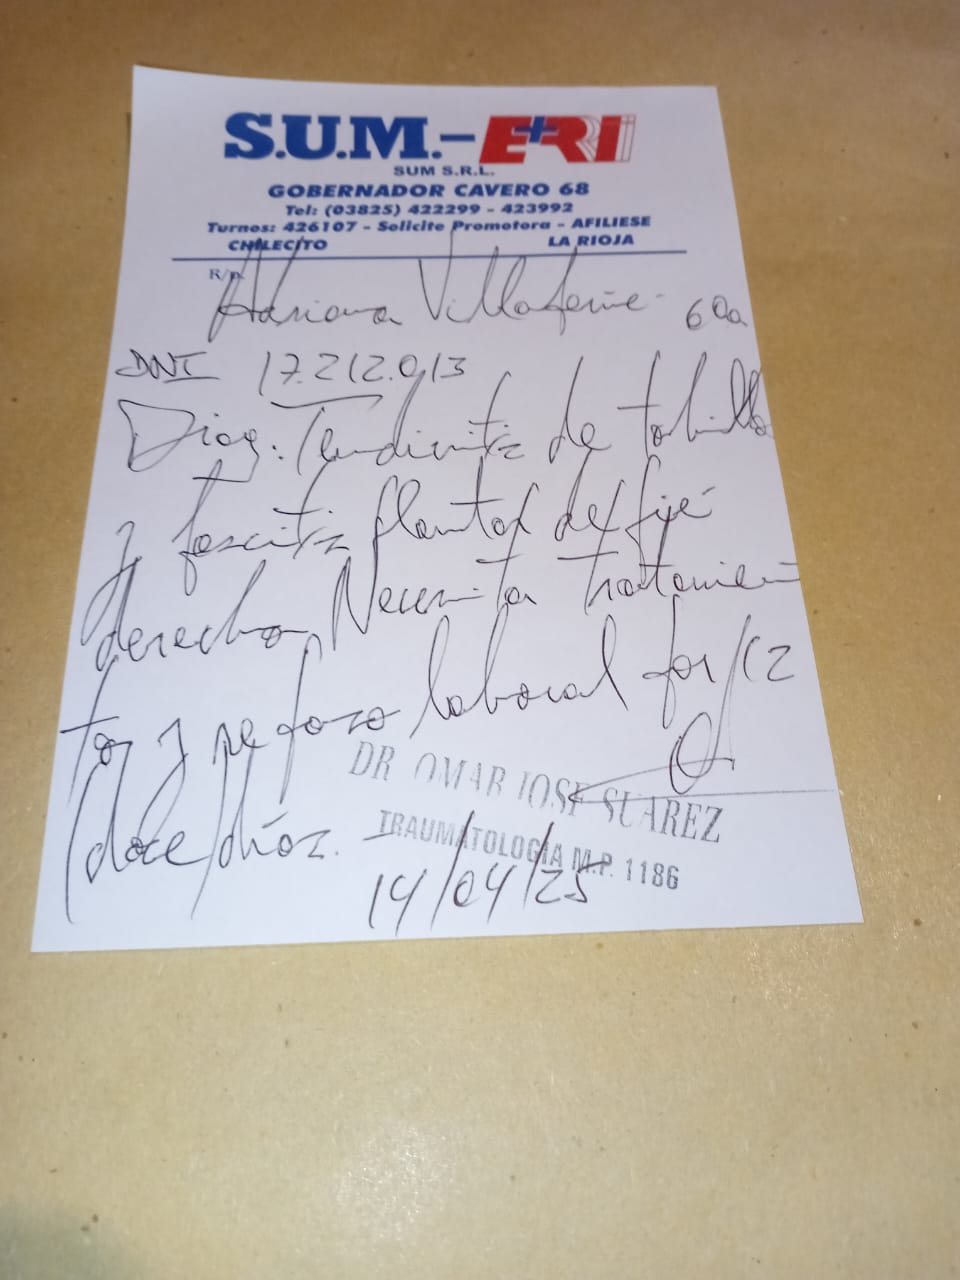 S.U.M.-ERI
SUM S.R.L.
GOBERNADOR CAVERO 68
Tel: (03825) 422299 - 423992
Turnos: 426107 - Solicite Promotora - AFILIESE
CHILECITO LA RIOJA
R/p.
Adriana Villafañe 60a
DNI 17.212.013
Diag: Tendinitis de tobillo
y fascitis plantar de pie
derecho. Necesita tratamien
to y reposo laboral por 12
(doce) días.
DR OMAR JOSE SUAREZ
TRAUMATOLOGIA M.P. 1186
14/04/25